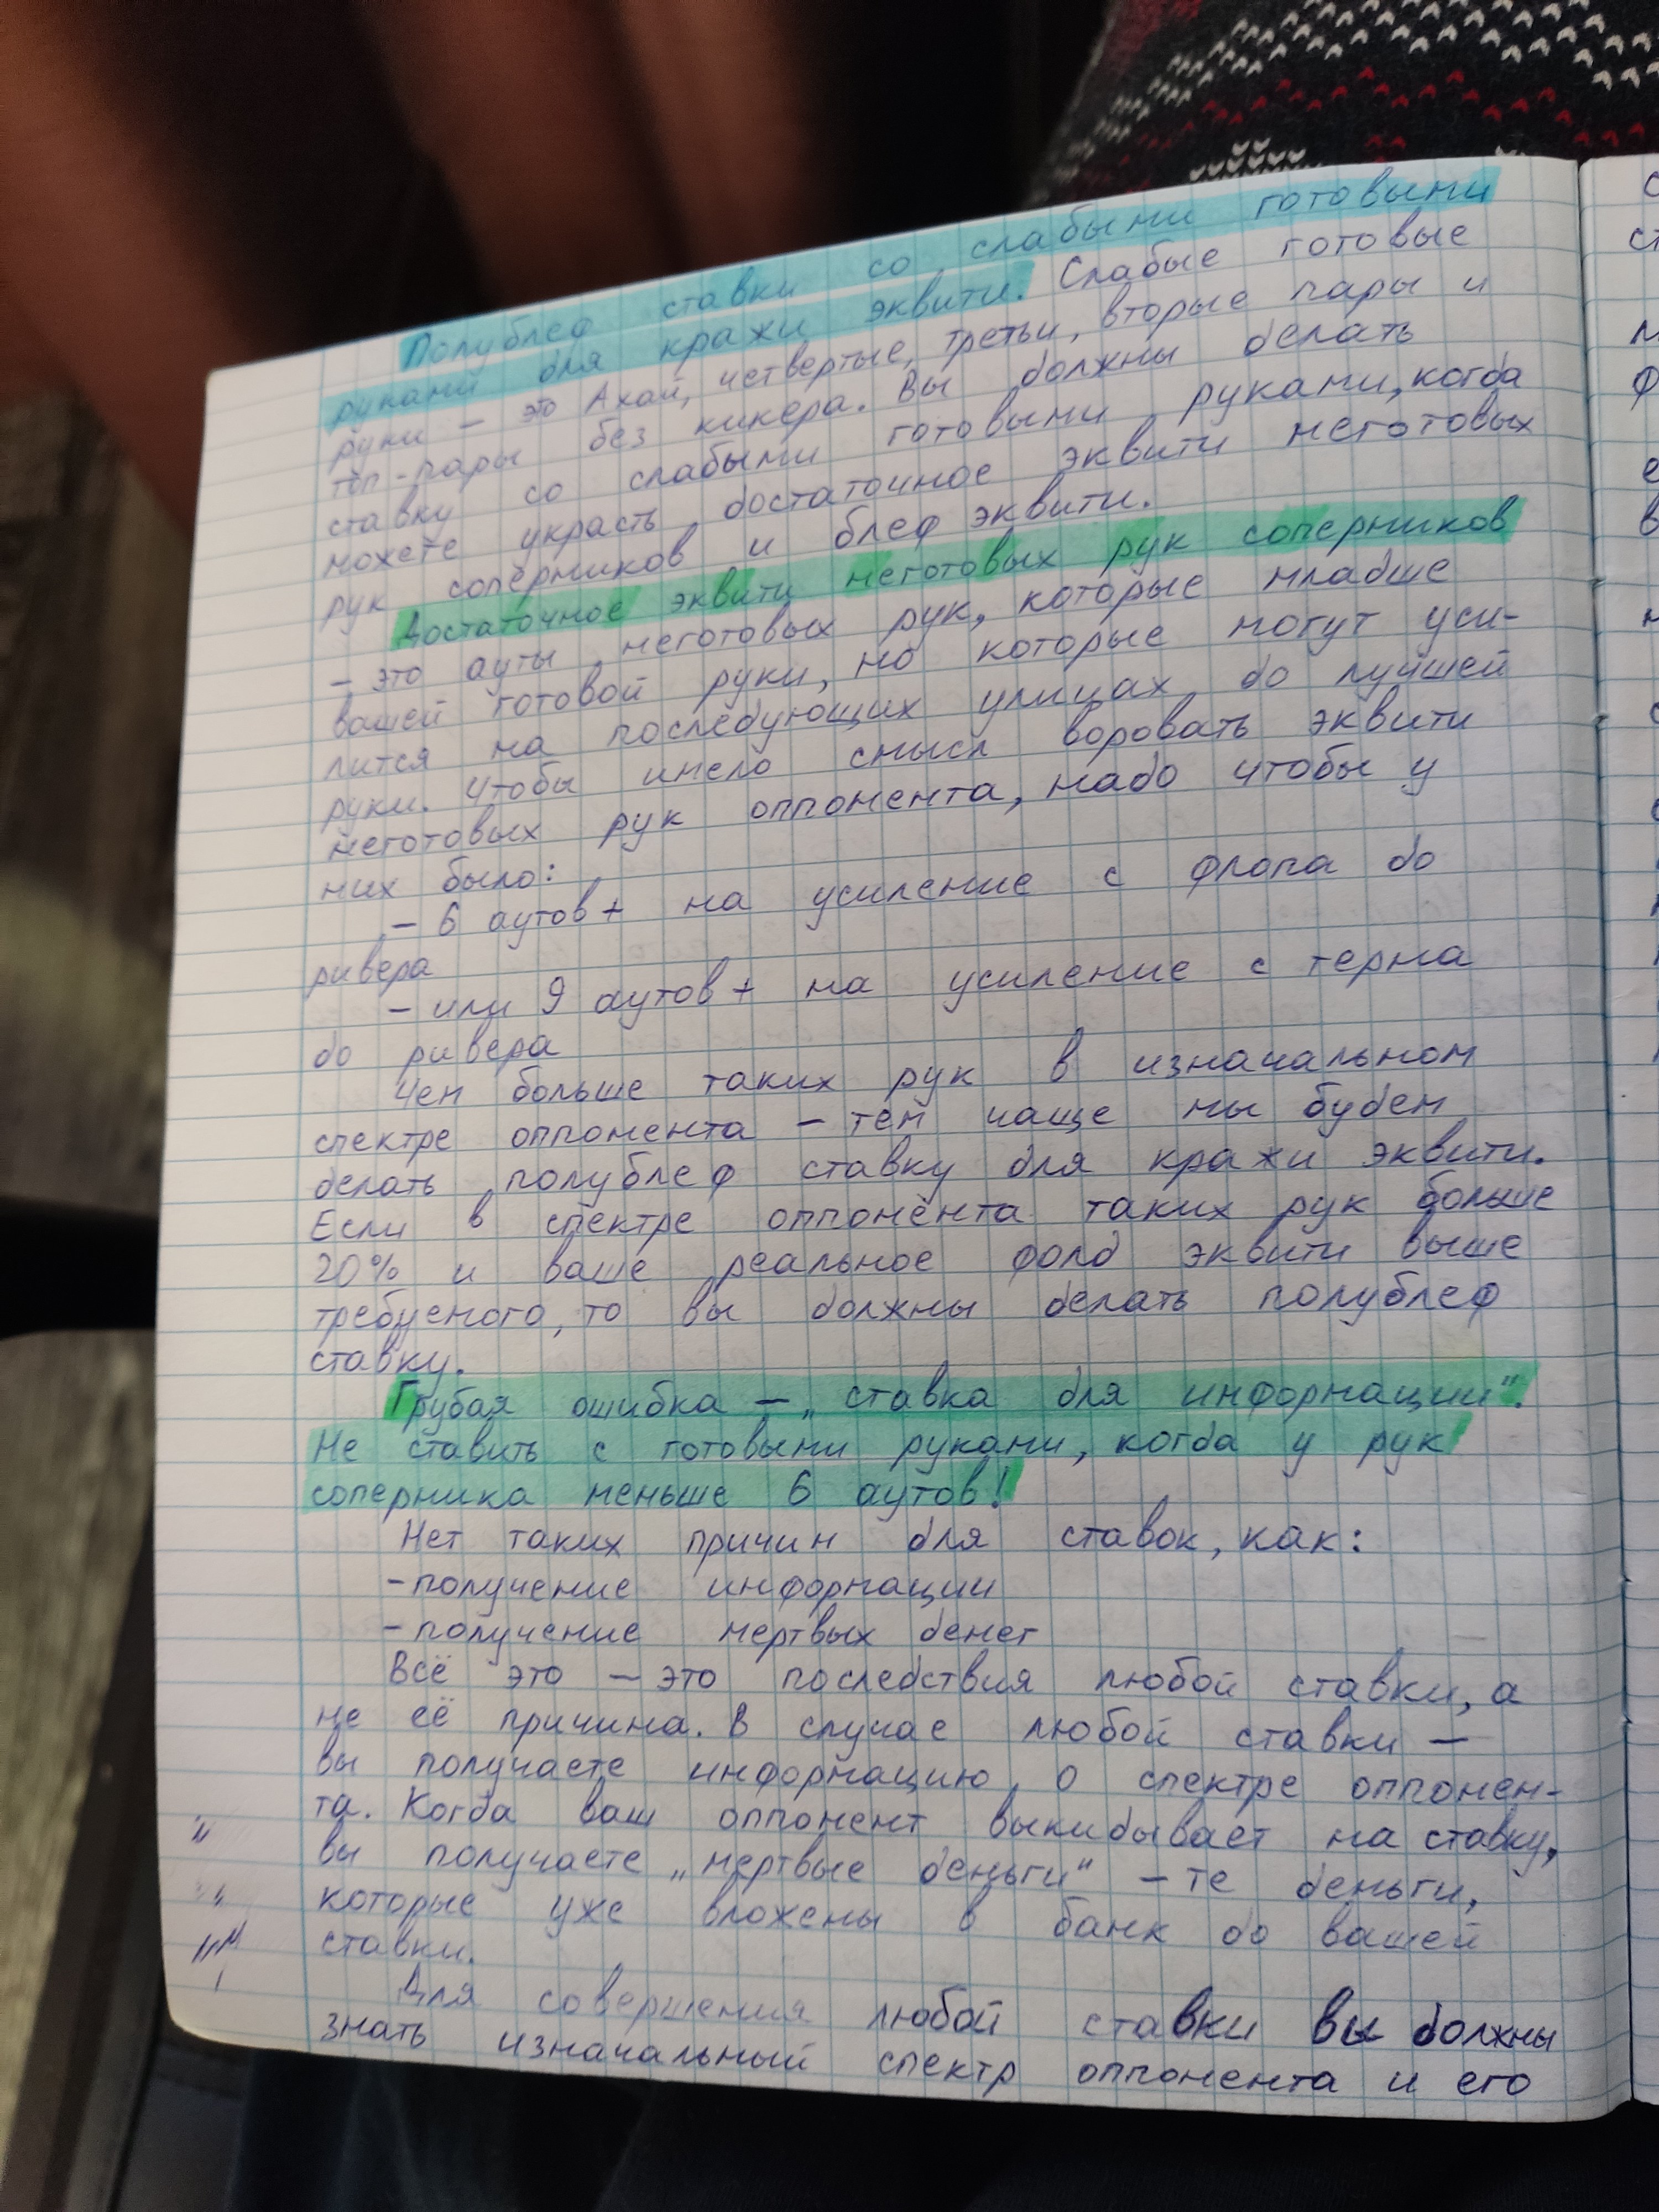 Полублеф ставки со слабыми готовыми
руками для кражи эквити. Слабые готовые
руки – это Ахай, четвертые, третьи, вторые пары и
топ-пары без кикера. Вы должны делать
ставку со слабыми готовыми руками, когда
можете украсть достаточное эквити неготовых
рук соперников и блеф эквити.
Достаточное эквити неготовых рук соперников
– это ауты неготовых рук, которые младше
вашей готовой руки, но которые могут уси-
лится на последующих улицах до лучшей
руки. Чтобы имело смысл воровать эквити
неготовых рук оппонента, надо чтобы у
них было:
– 6 аутов+ на усиление с флопа до
ривера
– или 9 аутов+ на усиление с терна
до ривера
Чем больше таких рук в изначальном
спектре оппонента – тем чаще мы будем
делать полублеф ставку для кражи эквити.
Если в спектре оппонента таких рук больше
20% и ваше реальное фолд эквити выше
требуемого, то вы должны делать полублеф
ставку.
Грубая ошибка – „ставка для информации".
Не ставить с готовыми руками, когда у рук
соперника меньше 6 аутов!
Нет таких причин для ставок, как:
-получение информации
-получение мертвых денег
Всё это – это последствия любой ставки, а
не её причина. В случае любой ставки –
вы получаете информацию о спектре оппонен-
та. Когда ваш оппонент выкидывает на ставку,
вы получаете „мертвые деньги" – те деньги,
которые уже вложены в банк до вашей
ставки.
Для совершения любой ставки вы должны
знать изначальный спектр оппонента и его